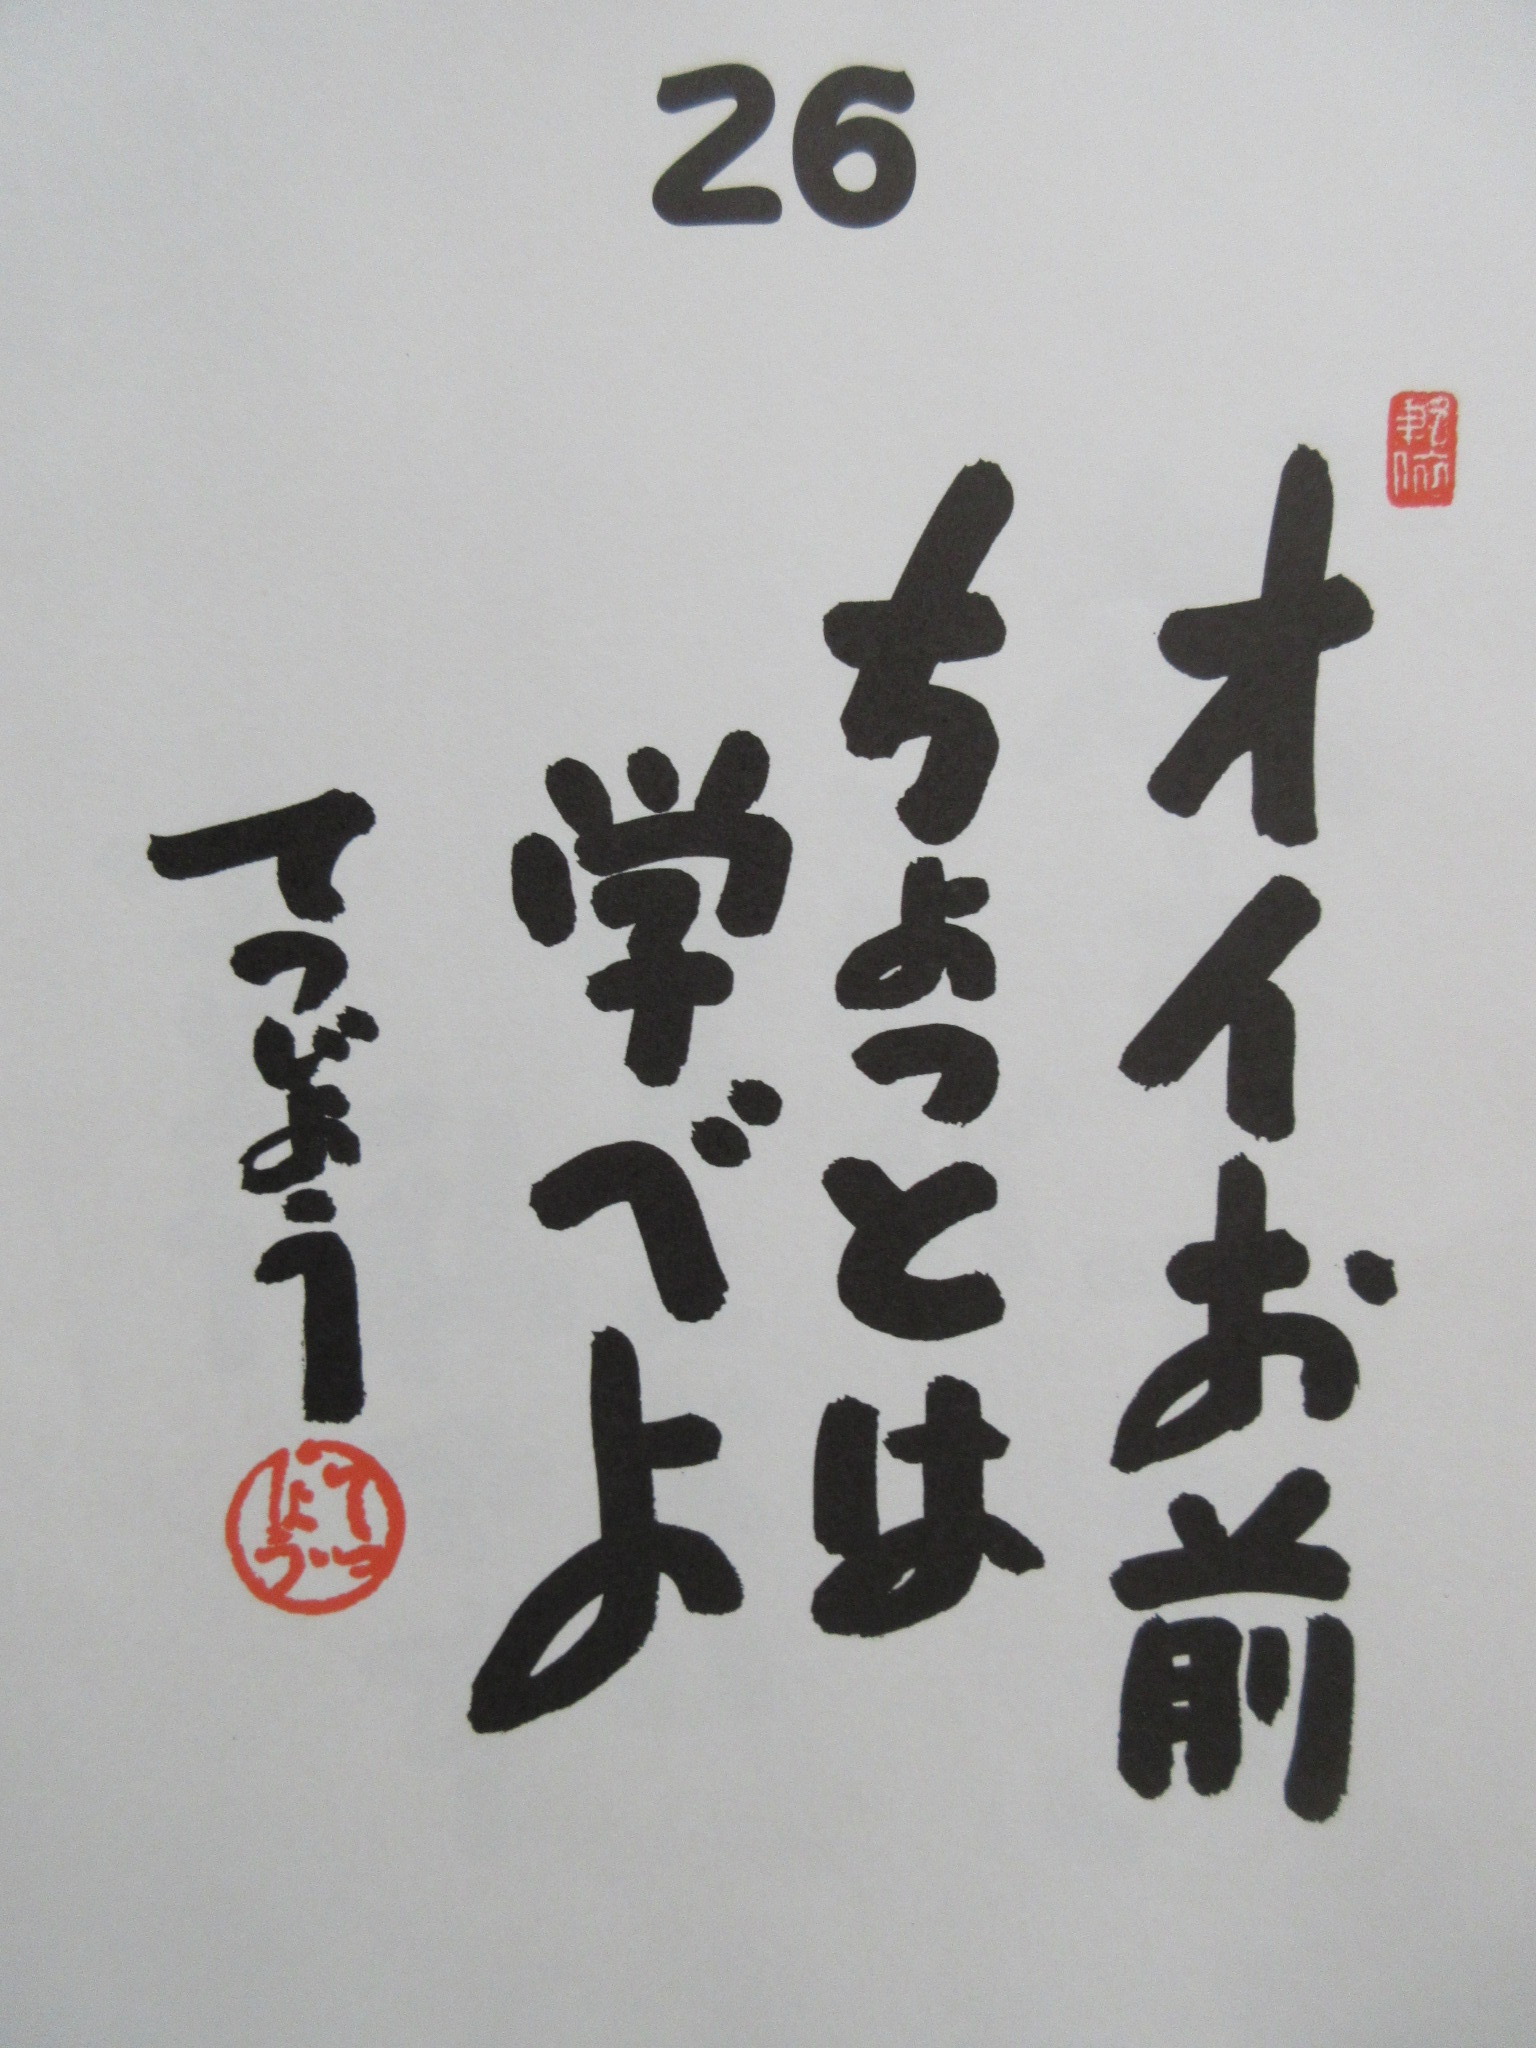 26
オイお前
ちょっとは
学べよ
てつじょう
てつじょう